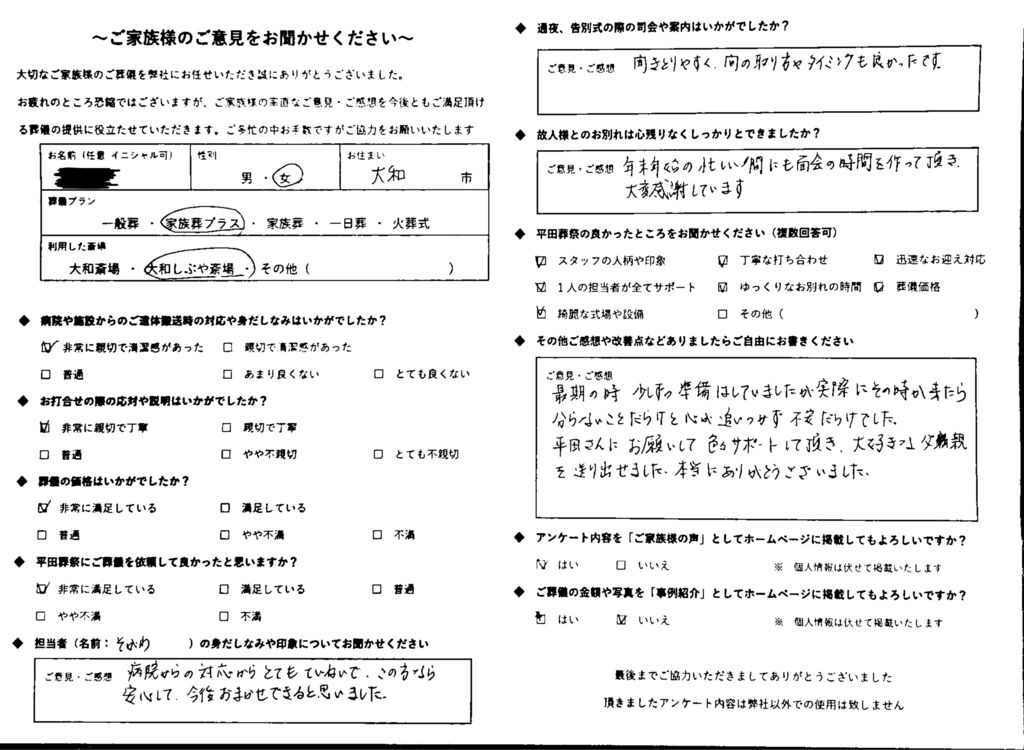 ～ご家族様のご意見をお聞かせください～
大切なご家族様のご葬儀を弊社にお任せいただき誠にありがとうございました。
お疲れのところ恐縮ではございますが、ご家族様の率直なご意見・ご感想を今後ともご満足頂け
る葬儀の提供に役立たせていただきます。ご多忙の中お手数ですがご協力をお願いいたします
お名前（任意 イニシャル可） 性別 お住まい
男 ・ 女 大和 市
葬儀プラン
一般葬 ・ 家族葬プラス ・ 家族葬 ・ 一日葬 ・ 火葬式
利用した斎場
大和斎場 ・ 大和しぶや斎場 ・ その他（ ）
◆ 病院や施設からのご遺体搬送時の対応や身だしなみはいかがでしたか？
☑ 非常に親切で清潔感があった □ 親切で清潔感があった
□ 普通 □ あまり良くない □ とても良くない
◆ お打合せの際の応対や説明はいかがでしたか？
☑ 非常に親切で丁寧 □ 親切で丁寧
□ 普通 □ やや不親切 □ とても不親切
◆ 葬儀の価格はいかがでしたか？
☑ 非常に満足している □ 満足している
□ 普通 □ やや不満 □ 不満
◆ 平田葬祭にご葬儀を依頼して良かったと思いますか？
☑ 非常に満足している □ 満足している □ 普通
□ やや不満 □ 不満
◆ 担当者（名前： ）の身だしなみや印象についてお聞かせください
ご意見・ご感想 病院からの対応からとてもていねいで、この方なら
安心して、今後おまかせできると思いました。
◆ 通夜、告別式の際の司会や案内はいかがでしたか？
ご意見・ご感想 聞きとりやすく、間の取り方やタイミングも良かったです
◆ 故人様とのお別れは心残りなくしっかりとできましたか？
ご意見・ご感想 年末年始の忙しい間にも面会の時間を作って頂き、
大変感謝しています
◆ 平田葬祭の良かったところをお聞かせください（複数回答可）
☑ スタッフの人柄や印象 ☑ 丁寧な打ち合わせ ☑ 迅速なお迎え対応
☑ １人の担当者が全てサポート ☑ ゆっくりなお別れの時間 ☑ 葬儀価格
☑ 綺麗な式場や設備 □ その他（ ）
◆ その他ご感想や改善点などありましたらご自由にお書きください
ご意見・ご感想
最期の時 少しずつ準備はしていましたが実際にその時が来たら
分らないことだらけと心が追いつかず不安だらけでした。
平田さんにお願いして色々サポートして頂き、大好きな父親
を送り出せました。本当にありがとうございました。
◆ アンケート内容を「ご家族様の声」としてホームページに掲載してもよろしいですか？
☑ はい □ いいえ ※ 個人情報は伏せて掲載いたします
◆ ご葬儀の金額や写真を「事例紹介」としてホームページに掲載してもよろしいですか？
□ はい ☑ いいえ ※ 個人情報は伏せて掲載いたします
最後までご協力いただきましてありがとうございました
頂きましたアンケート内容は弊社以外での使用は致しません